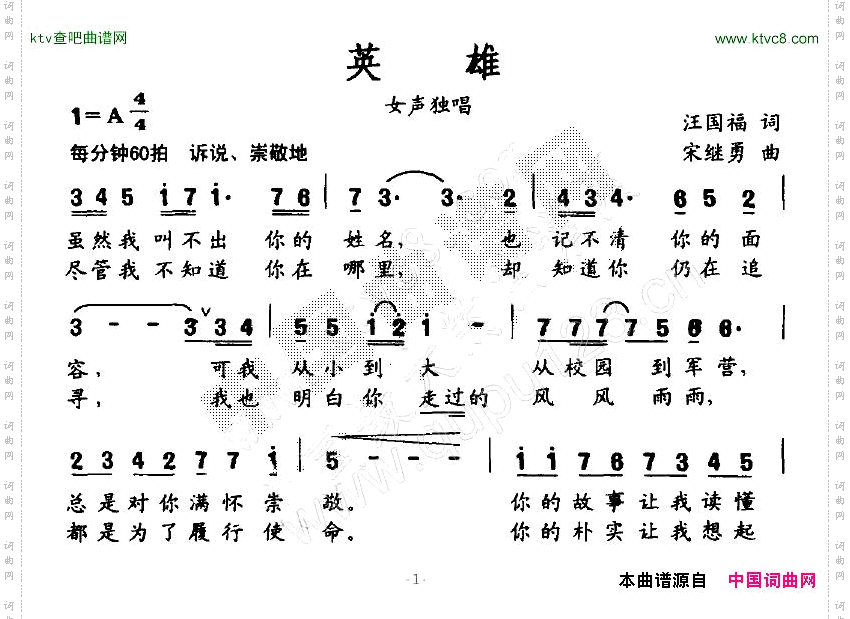 ktv查吧曲谱网
www.ktvc8.com
英 雄
女声独唱
1=A 4/4
汪国福 词
每分钟60拍 诉说、崇敬地
宋继勇 曲
3 4 5 i 7 i· 7 6 | 7 3· 3· 2 | 4 3 4· 6 5 2 |
虽然我 叫不出 你的 姓名, 也 记不清 你的 面
尽管我 不知道 你在 哪里, 却 知道你 仍在 追
3 - - 3 3 4 | 5 5 i 2 i - | 7 7 7 7 5 6 6· |
容, 可我 从小到 大 从校园 到军营,
寻, 我也 明白你 走过的 风 风 雨雨,
2 3 4 2 7 7 i | 5 - - - | i i 7 6 7 3 4 5 |
总是对你满怀崇 敬。 你的故事让我读懂
都是为了履行使 命。 你的朴实让我想起
-1-
本曲谱源自 中国词曲网